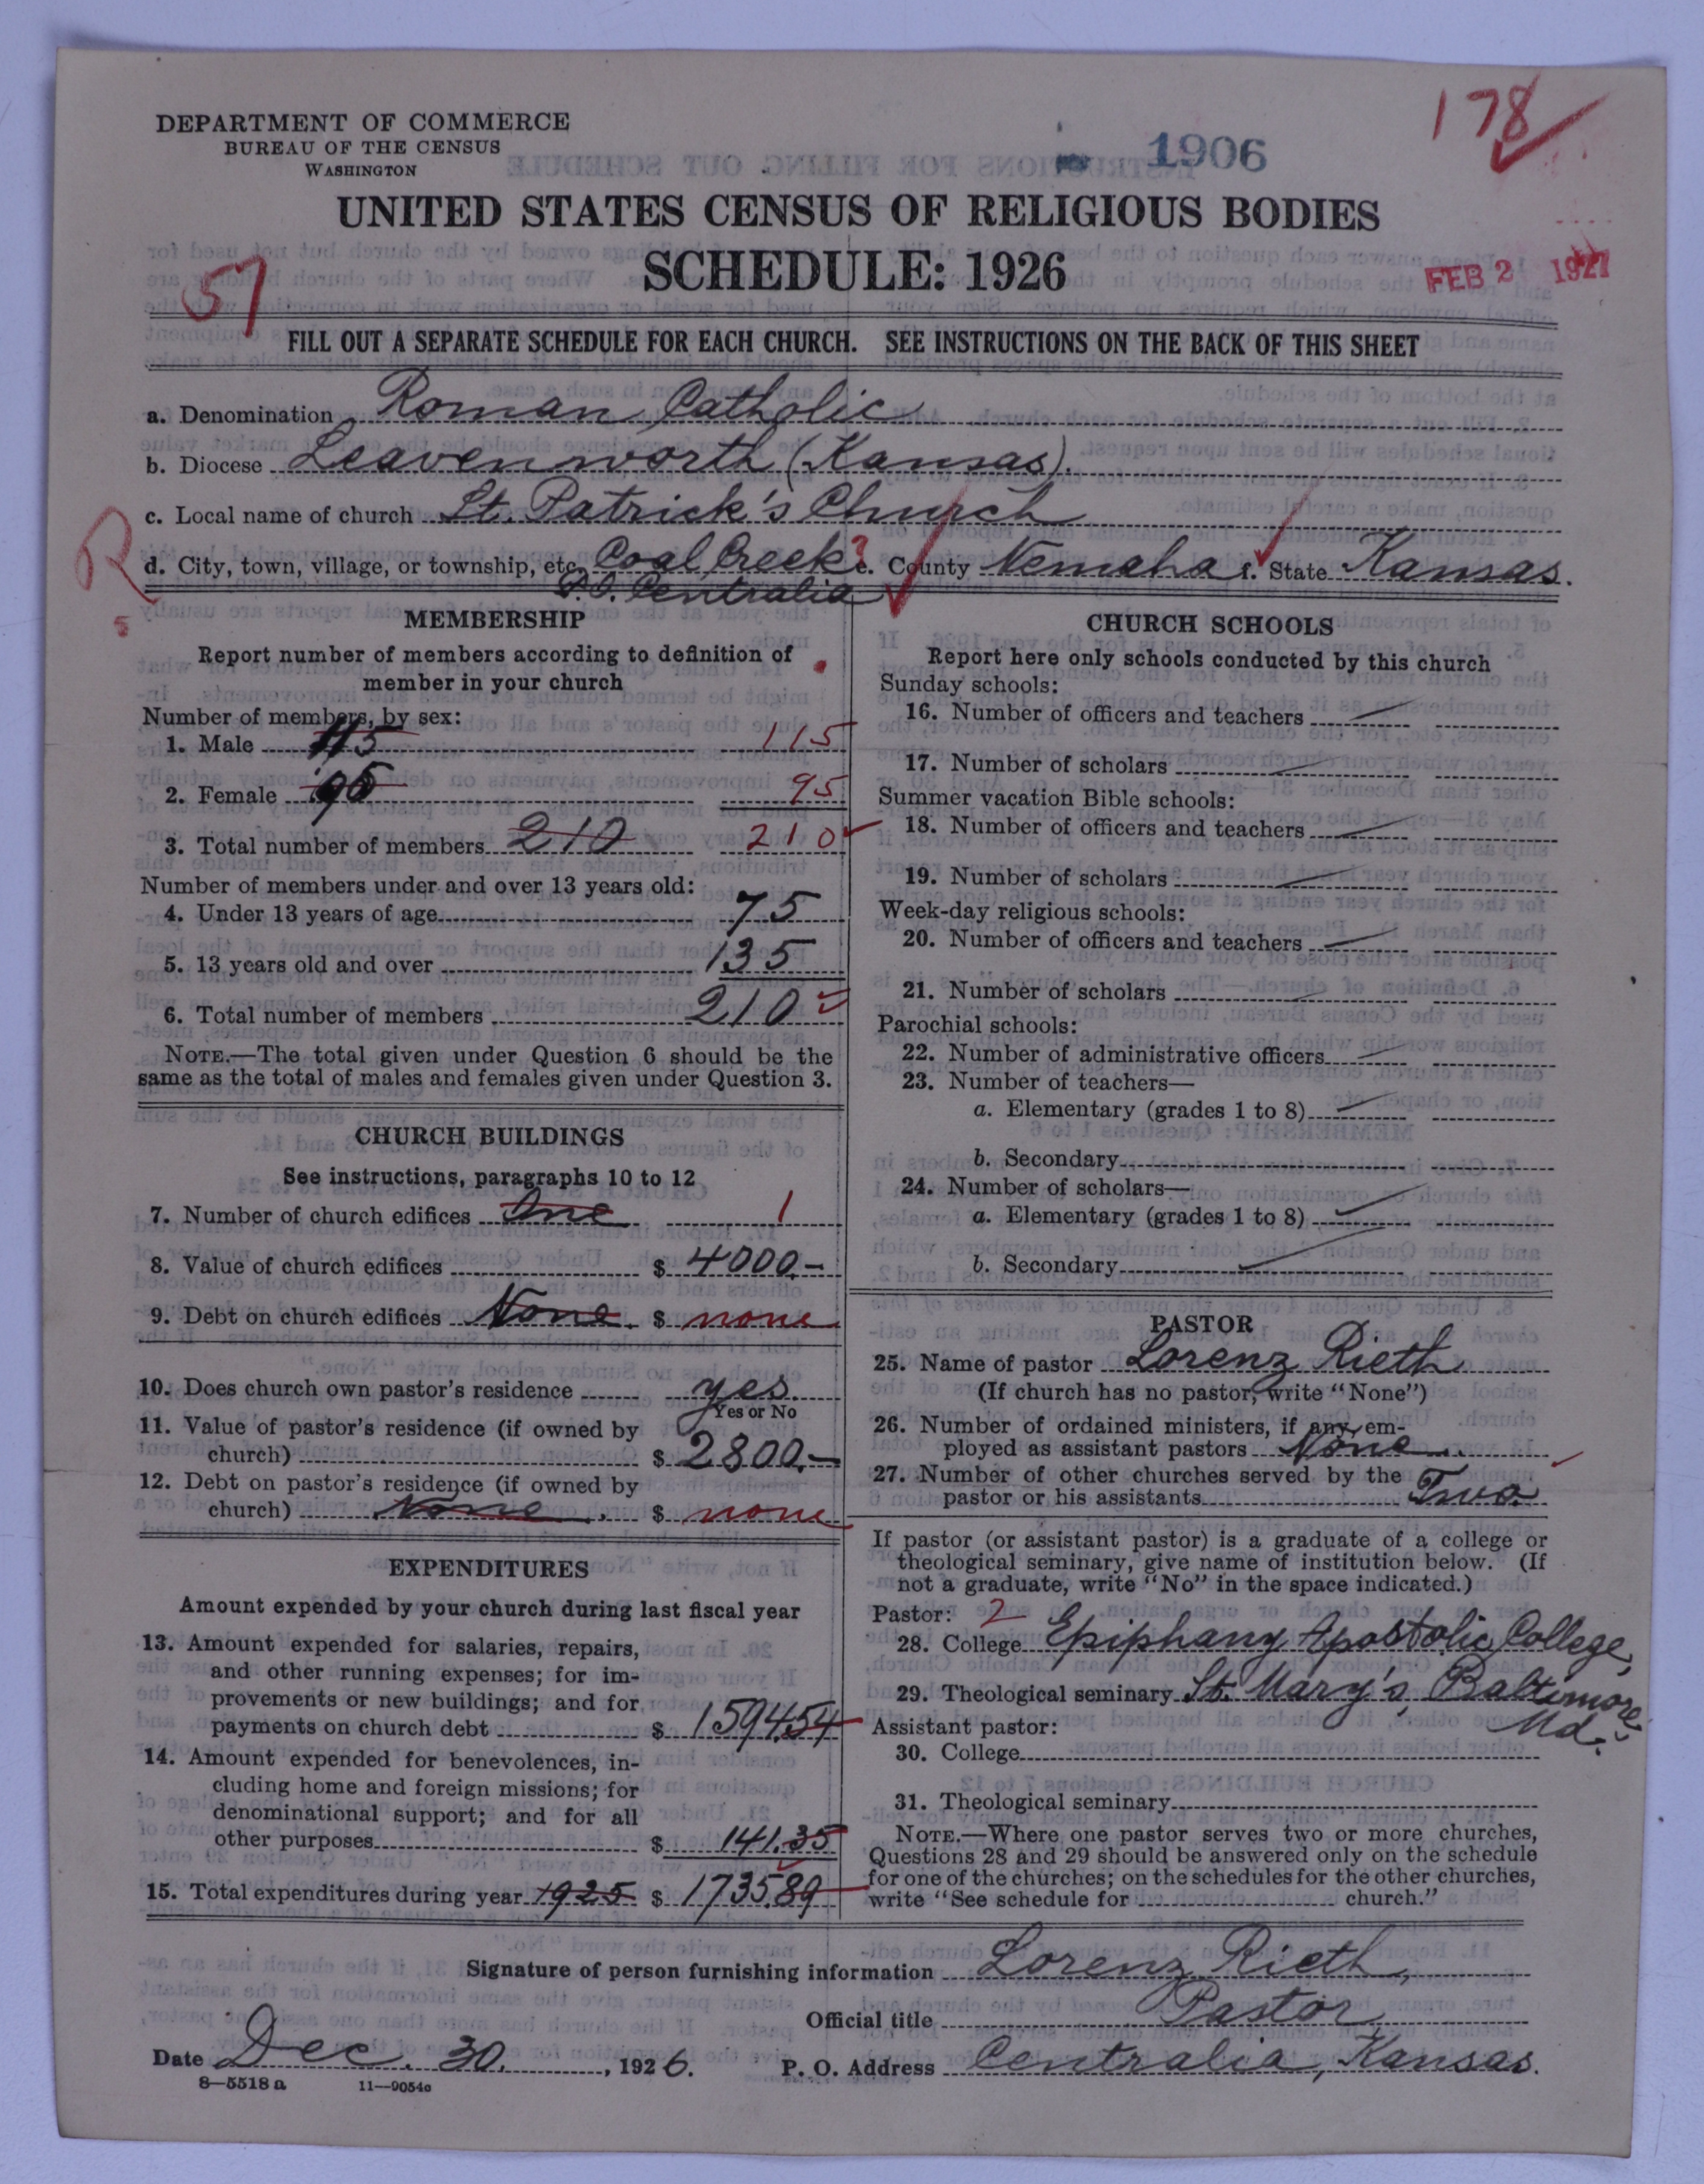 DEPARTMENT OF COMMERCE
BUREAU OF THE CENSUS
WASHINGTON
1906
178
UNITED STATES CENSUS OF RELIGIOUS BODIES
SCHEDULE: 1926
57
FEB 2 1927
FILL OUT A SEPARATE SCHEDULE FOR EACH CHURCH. SEE INSTRUCTIONS ON THE BACK OF THIS SHEET
a. Denomination Roman Catholic
b. Diocese Leavenworth (Kansas).
c. Local name of church St. Patrick's Church
R
d. City, town, village, or township, etc. Coal Creek ? e. County Nemaha f. State Kansas.
P.O. Centralia
5
MEMBERSHIP
Report number of members according to definition of
member in your church
Number of members, by sex:
1. Male 115 115
2. Female 95 95
3. Total number of members 210 210
Number of members under and over 13 years old:
4. Under 13 years of age 75
5. 13 years old and over 135
6. Total number of members 210
NOTE.—The total given under Question 6 should be the
same as the total of males and females given under Question 3.
CHURCH BUILDINGS
See instructions, paragraphs 10 to 12
7. Number of church edifices One 1
8. Value of church edifices $ 4000.—
9. Debt on church edifices None. $ none
10. Does church own pastor's residence yes
Yes or No
11. Value of pastor's residence (if owned by
church) $ 2800.—
12. Debt on pastor's residence (if owned by
church) None. $ none
EXPENDITURES
Amount expended by your church during last fiscal year
13. Amount expended for salaries, repairs,
and other running expenses; for im-
provements or new buildings; and for
payments on church debt $ 1594.54
14. Amount expended for benevolences, in-
cluding home and foreign missions; for
denominational support; and for all
other purposes $ 141.35
15. Total expenditures during year 1925 $ 1735.89
CHURCH SCHOOLS
Report here only schools conducted by this church
Sunday schools:
16. Number of officers and teachers
17. Number of scholars
Summer vacation Bible schools:
18. Number of officers and teachers
19. Number of scholars
Week-day religious schools:
20. Number of officers and teachers
21. Number of scholars
Parochial schools:
22. Number of administrative officers
23. Number of teachers—
a. Elementary (grades 1 to 8)
b. Secondary
24. Number of scholars—
a. Elementary (grades 1 to 8)
b. Secondary
PASTOR
25. Name of pastor Lorenz Rieth
(If church has no pastor, write "None")
26. Number of ordained ministers, if any, em-
ployed as assistant pastors None
27. Number of other churches served by the
pastor or his assistants Two.
If pastor (or assistant pastor) is a graduate of a college or
theological seminary, give name of institution below. (If
not a graduate, write "No" in the space indicated.)
Pastor: 2
28. College Epiphany Apostolic College,
29. Theological seminary St. Mary's, Baltimore,
Md.
Assistant pastor:
30. College
31. Theological seminary
NOTE.—Where one pastor serves two or more churches,
Questions 28 and 29 should be answered only on the schedule
for one of the churches; on the schedules for the other churches,
write "See schedule for church."
Signature of person furnishing information Lorenz Rieth,
Official title Pastor
Date Dec. 30., 1926. P. O. Address Centralia, Kansas.
8—5518 a 11—9054a